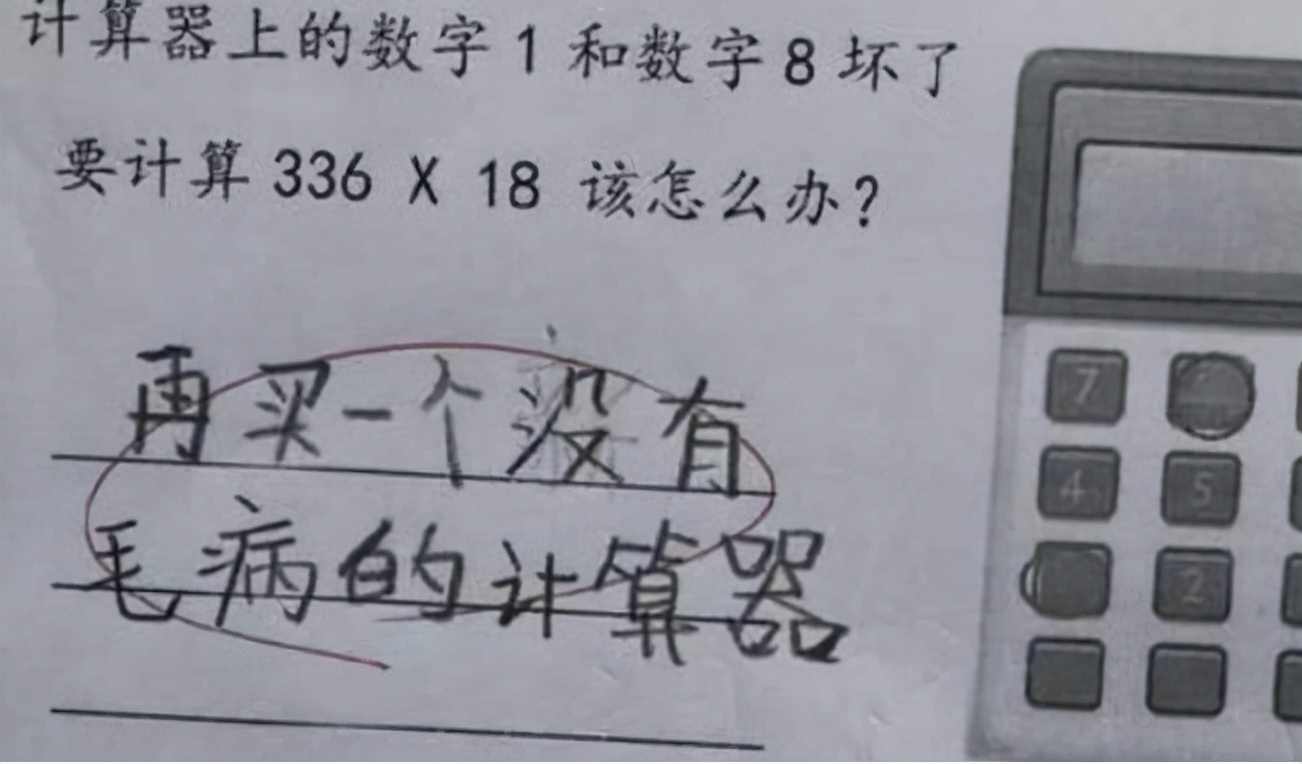 计算器上的数字1和数字8坏了
要计算336 X 18 该怎么办?
再买一个没有
毛病的计算器
7
4 5
2